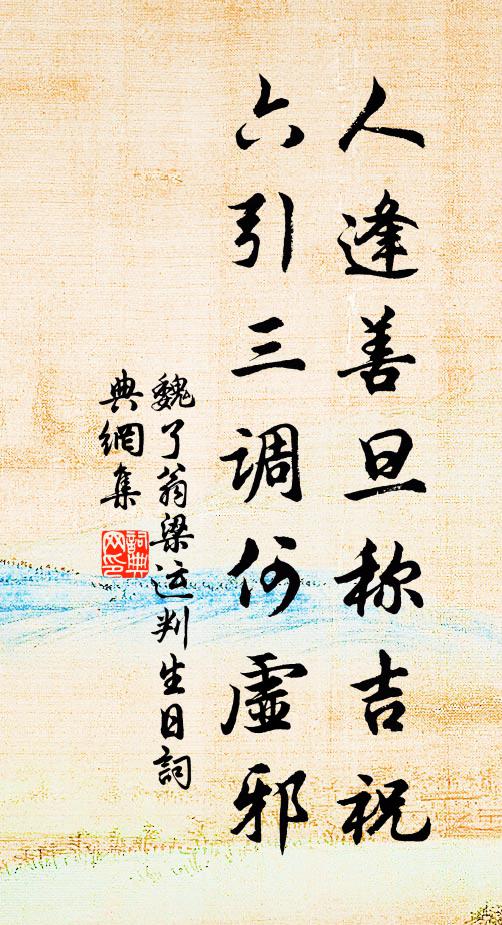 人逢善旦称吉祝
六引三调何虚邪
魏了翁梁运判生日詞
典網集
詞典网印